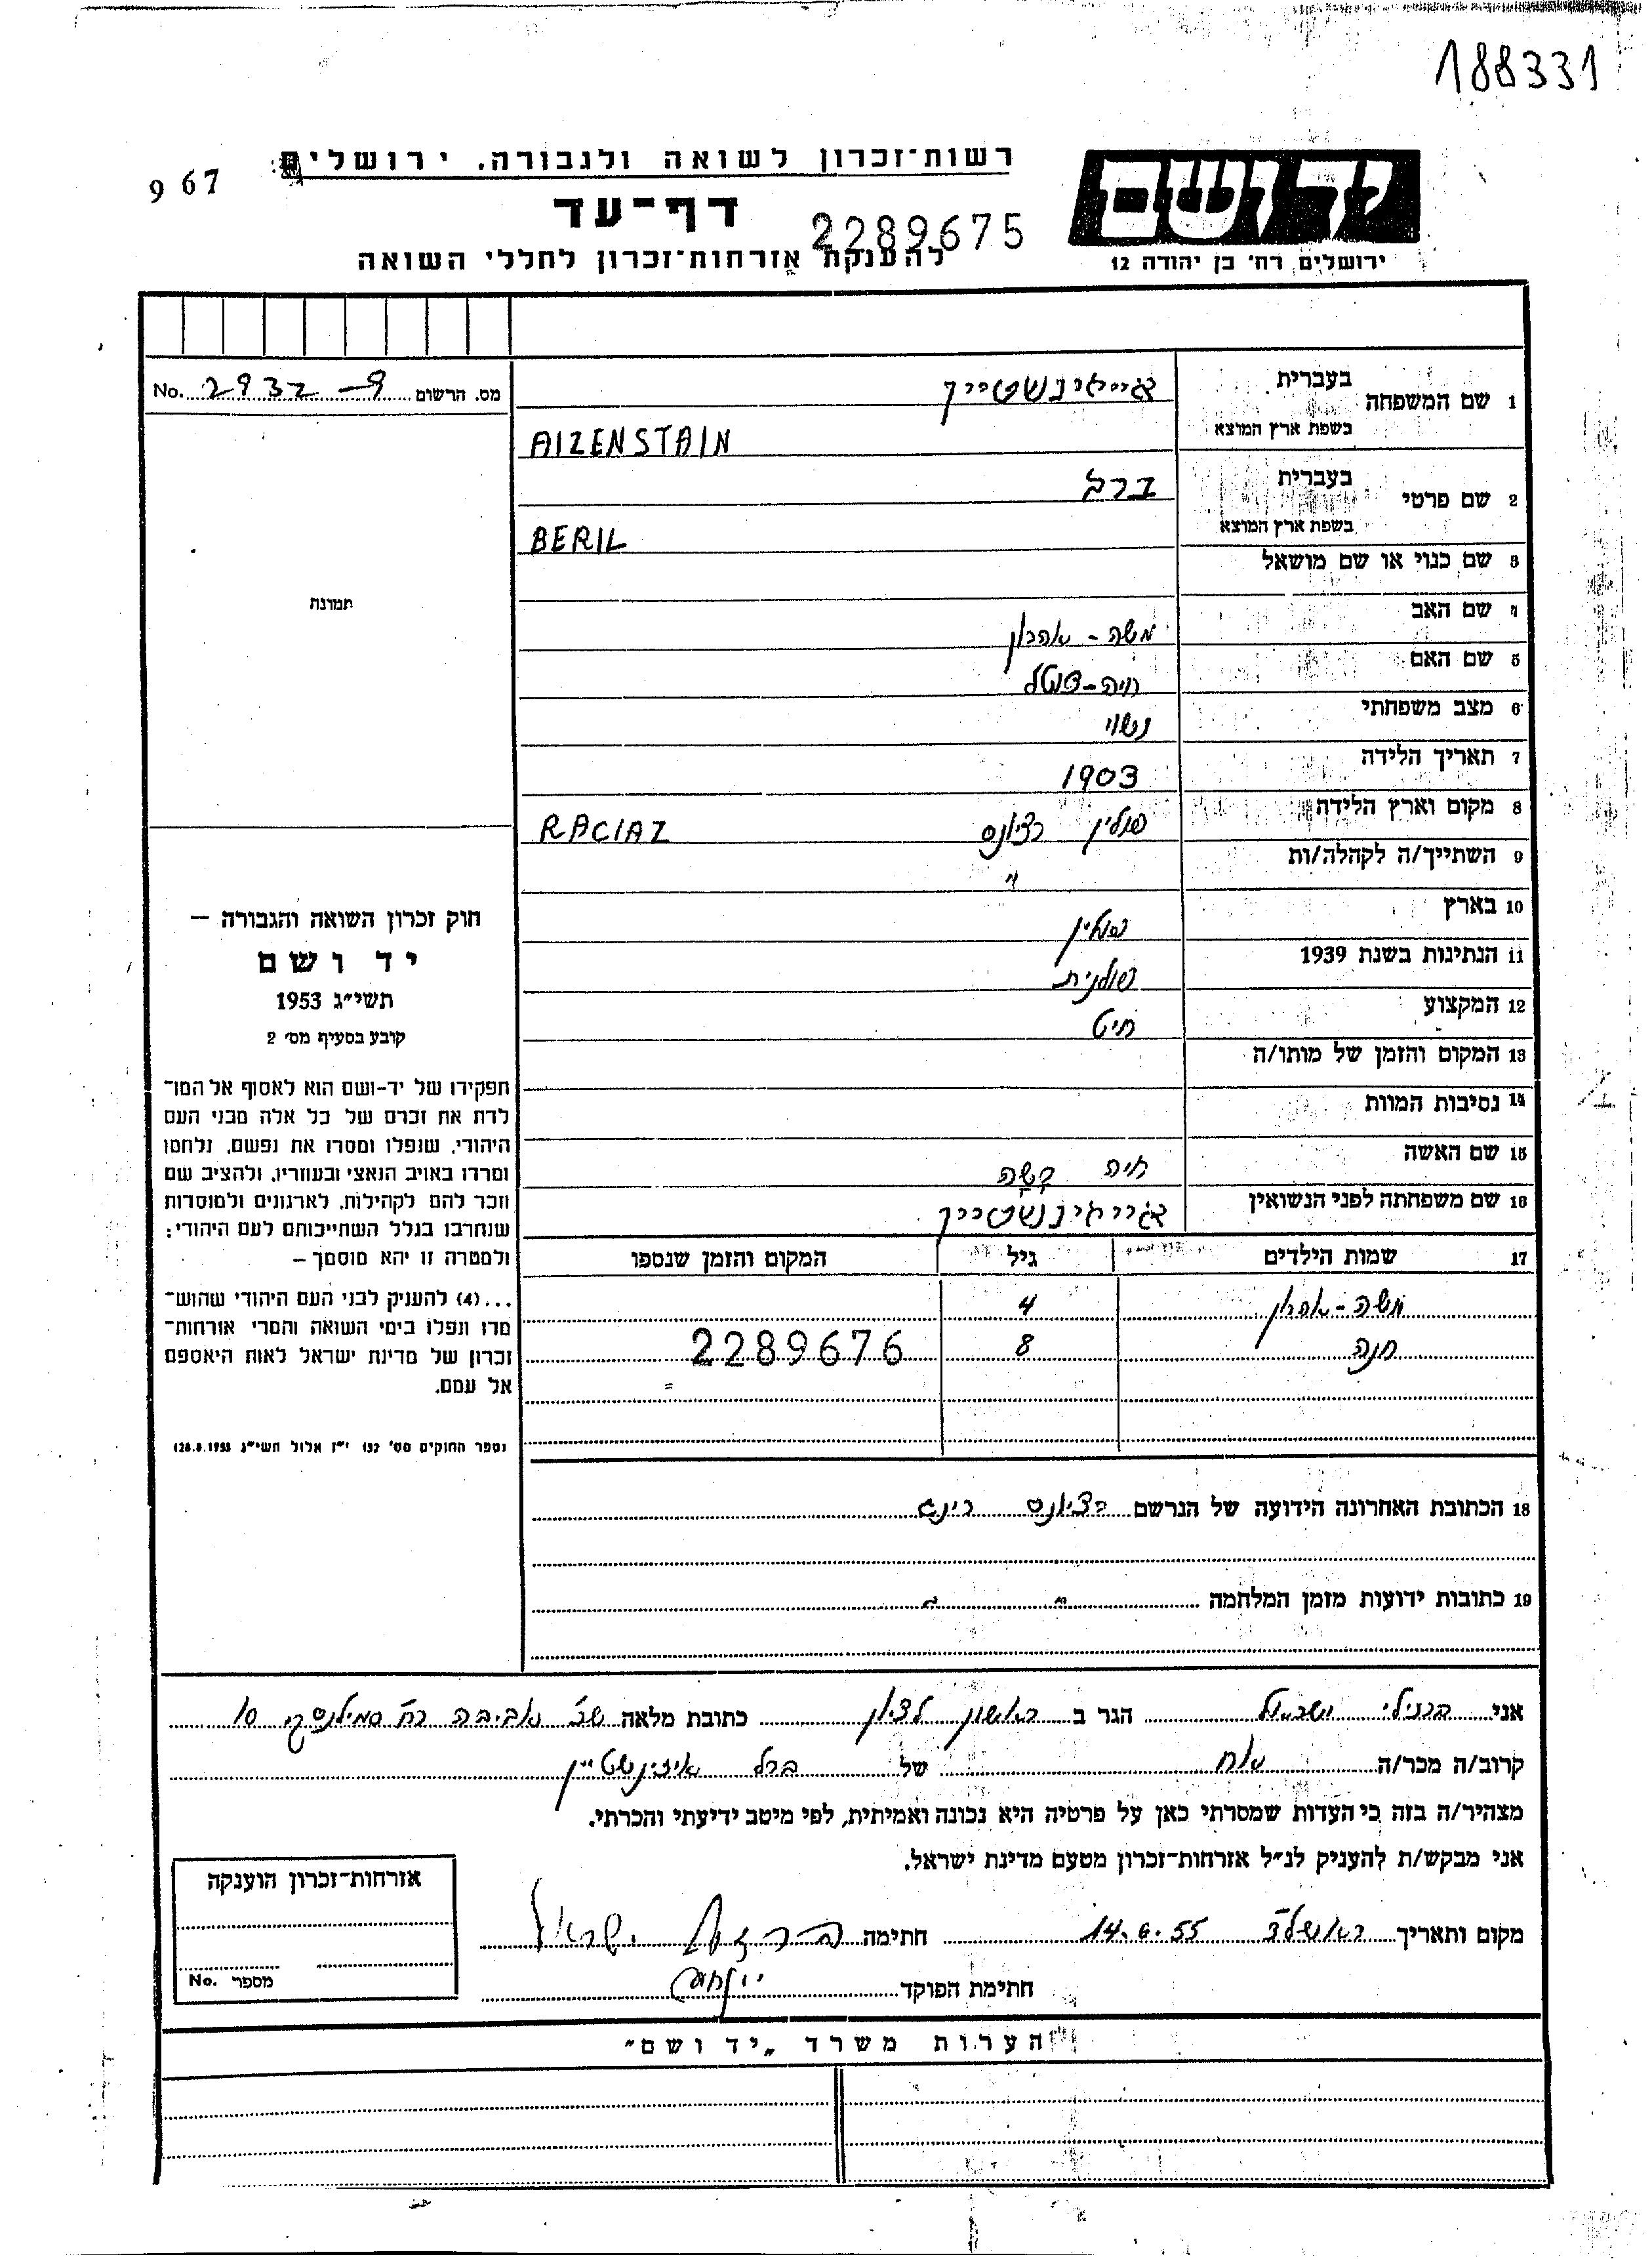 188331
967
רשות־זכרון לשואה ולגבורה. ירושלים
דף־עד
2289675
להענקת אזרחות־זכרון לחללי השואה
יד ושם
ירושלים, רח' בן יהודה 12
מס. הרשום 2932-9 No.
תמונה
1 שם המשפחה
בעברית אייזינשטיין
בשפת ארץ המוצא AIZENSTAIN
2 שם פרטי
בעברית ברל
בשפת ארץ המוצא BERIL
3 שם כנוי או שם מושאל
4 שם האב משה - אהרון
5 שם האם חיה-
6 מצב משפחתי נשוי
7 תאריך הלידה 1903
8 מקום וארץ הלידה פולין רציונס RACIAZ
9 השתייך/ה לקהלה/ות "
10 בארץ פולין
11 הנתינות בשנת 1939 פולנית
12 המקצוע חיט
13 המקום והזמן של מותו/ה
14 נסיבות המוות
15 שם האשה חיה קשה
16 שם משפחתה לפני הנשואין אייזינשטיין
17 שמות הילדים גיל המקום והזמן שנספו
משה - אהרון 4
חנה 8 2289676
18 הכתובת האחרונה הידועה של הנרשם רציונס
19 כתובות ידועות מזמן המלחמה " "
חוק זכרון השואה והגבורה —
יד ושם
תשי״ג 1953
קובע בסעיף מס׳ 2
תפקידו של יד-ושם הוא לאסוף אל המו־
לדת את זכרם של כל אלה מבני העם
היהודי, שנפלו ומסרו את נפשם, נלחמו
ומרדו באויב הנאצי ובעוזריו, ולהציב שם
וזכר להם לקהילות, לארגונים ולמוסדות
שנחרבו בגלל השתייכותם לעם היהודי;
ולמטרה זו יהא מוסמך —
...(4) להעניק לבני העם היהודי שהוש־
מדו ונפלו בימי השואה והמרי אזרחות־
זכרון של מדינת ישראל לאות היאספם
אל עמם.
(ספר החוקים מס׳ 132 י״ז אלול תשי״ג 28.8.1953)
אני ברזילי ישראל הגר ב ראשון לציון כתובת מלאה שכ' אביבה רח' סמילנסקי 10
קרוב/ה מכר/ה אח של ברל איזינשטיין
מצהיר/ה בזה כי העדות שמסרתי כאן על פרטיה היא נכונה ואמיתית, לפי מיטב ידיעתי והכרתי.
אני מבקש/ת להעניק לנ״ל אזרחות־זכרון מטעם מדינת ישראל.
מקום ותאריך ראשל״צ 14.6.55 חתימה ישראל
חתימת הפוקד
אזרחות־זכרון הוענקה
מספר No.
הערות משרד „יד ושם״